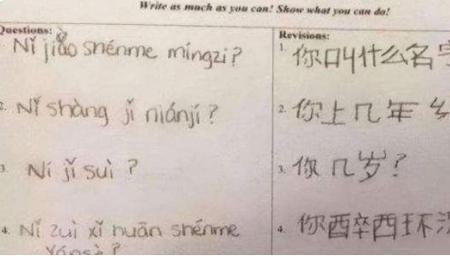 Write as much as you can! Show what you can do!
Questions:
Nǐ jiào shénme míngzi?
2. Nǐ shàng jǐ niánjí?
3. Ní jǐ suì ?
4. Nǐ zuì xǐ huān shénme
Revisions:
1. 你叫什么名字
2. 你上几年
3. 你几岁?
4. 你酉卒西环